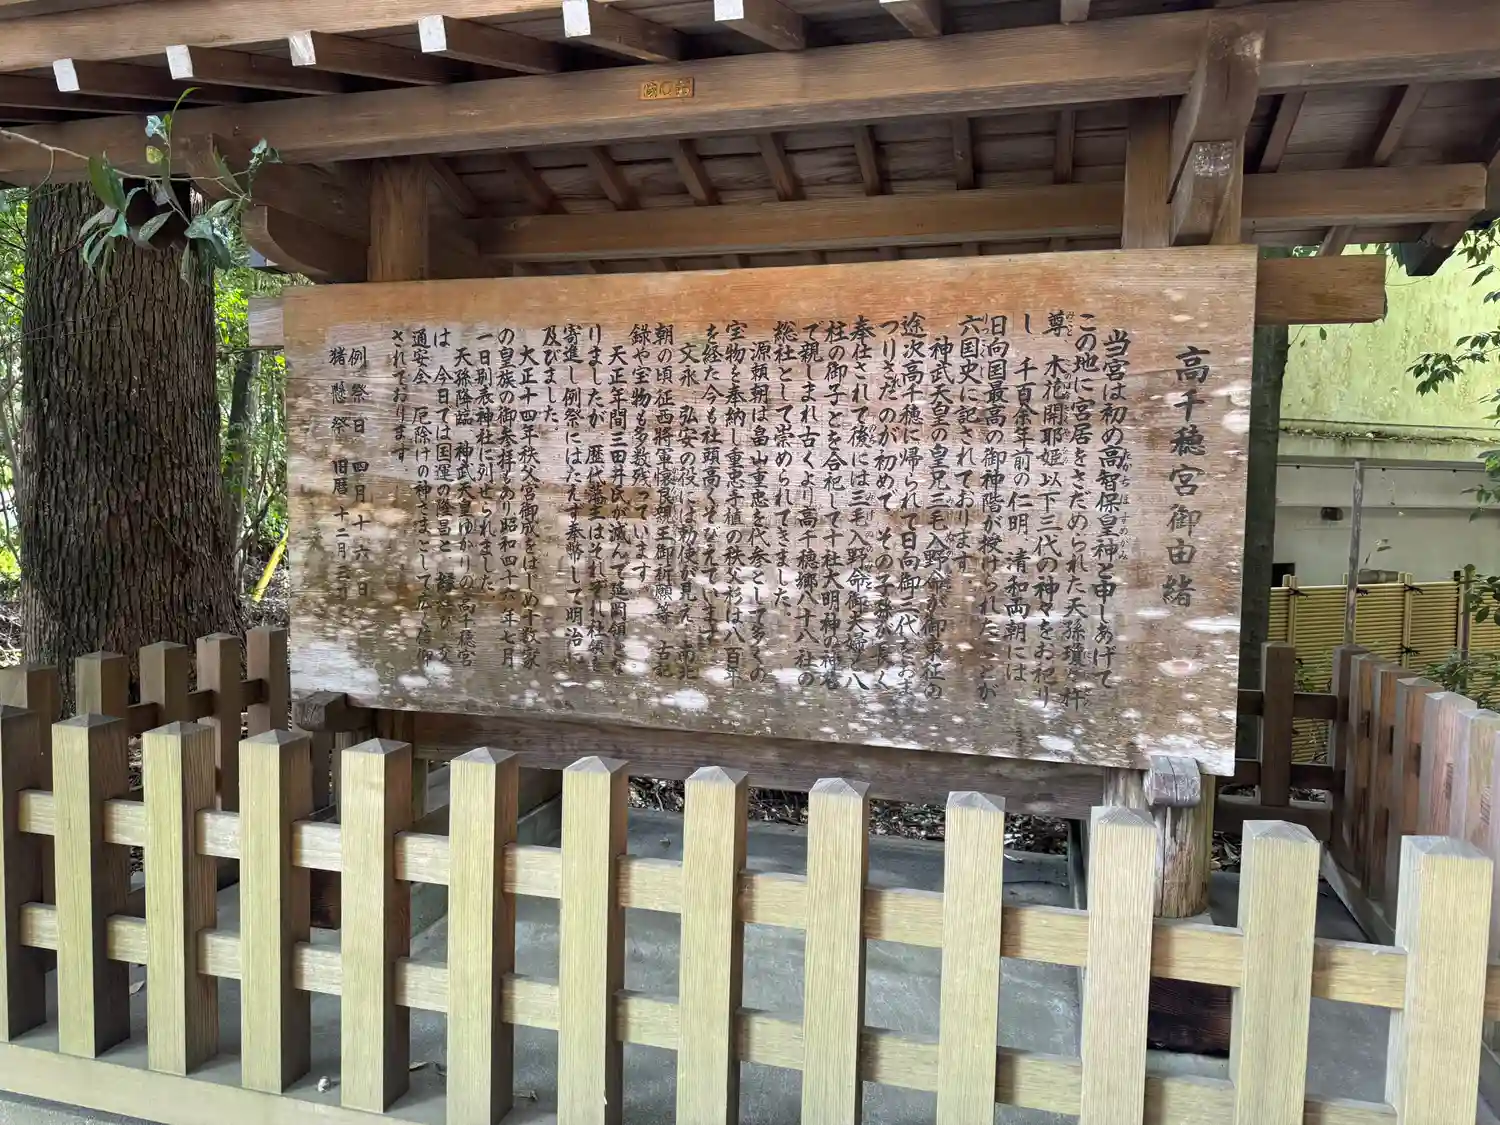 高千穂宮御由緒
当宮は初め高智保皇神と申しあげて
この地に宮居をさだめられた天孫瓊々杵
尊 木花開耶姫以下三代の神々をお祀り
し 千百余年前の仁明 清和両朝には
日向国最高の御神階が授けられたことが
六国史に記されております
神武天皇の皇兄三毛入野命が御東征の
途次高千穂に帰られて日向御三代をおま
つりさだのが初めで その子孫が長く
奉仕されて後には三毛入野命御夫婦と八
柱の御子とを合祀して十社大明神の神名
で親しまれ古くより高千穂郷八十八社の
総社として崇められてきました
源頼朝は畠山重忠を代参として多くの
宝物を奉納し重忠手植の秩父杉は八百年
を経た今も社頭高くそびえています
文永 弘安の役には勅使が見え 南北
朝の頃征西将軍懐良親王御祈願等 古記
録や宝物も多数残っています
天正年間三田井氏が滅んで延岡領とな
りましたが 歴代藩主はそれぞれ社領を
寄進し例祭にはたえず奉幣して明治に
及びました
大正十四年秩父宮御成をはじめ十数家
の皇族の御参拝もあり昭和四十六年七月
一日別表神社に列せられました
天孫降臨 神武天皇ゆかりの高千穂宮
は 今日では国運の隆昌と 縁結び 交
通安全 厄除けの神さまとして広く信仰
されております
例祭日 四月十六日
猪懸祭 旧暦十二月三日